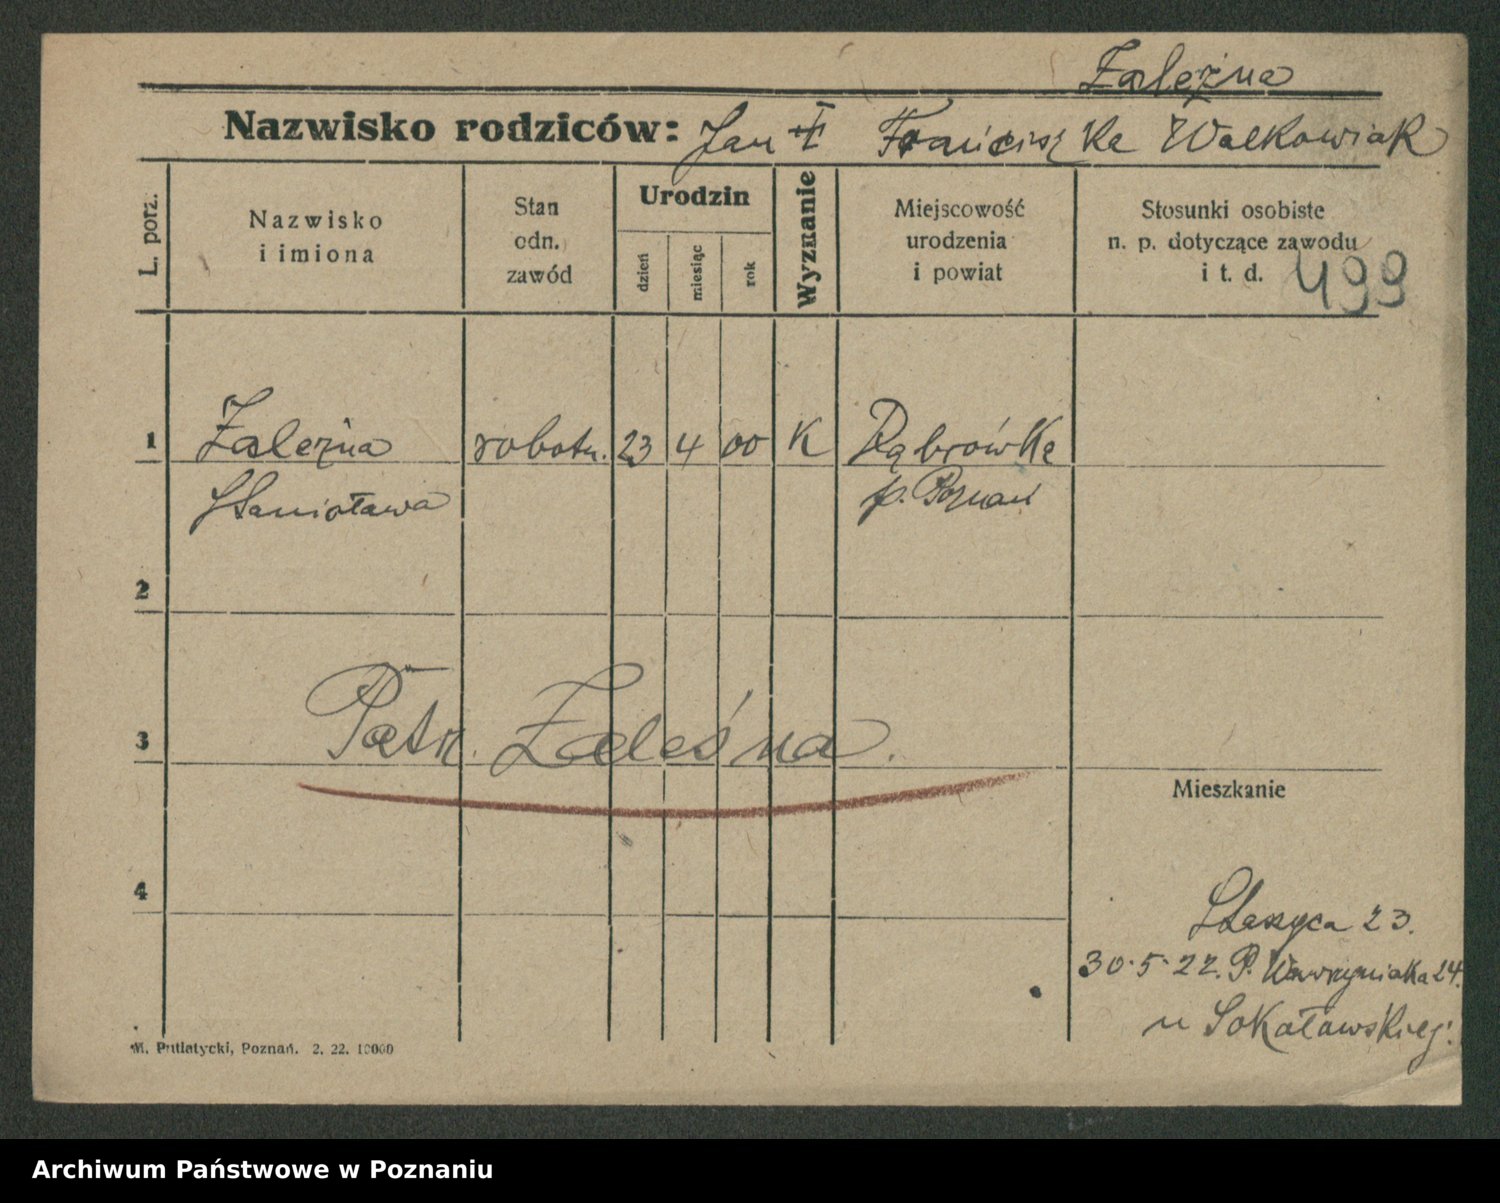 Zależna
Nazwisko rodziców: Jan Franciszka Walkowiak
L. porz.
Nazwisko
i imiona
Stan
odn.
zawód
Urodzin
dzień
miesiąc
rok
Wyznanie
Miejscowość
urodzenia
i powiat
Stosunki osobiste
n. p. dotyczące zawodu
i t. d.
499
1 Zależna robotn. 23 4 00 K Dąbrówka
Stanisława p. Poznań
2
Patrz Zaleśna.
3
Mieszkanie
4
Staszyca 23.
30.5.22. P. Wawrzyniaka 24.
u
M. Putiatycki, Poznań. 2. 22. 10000
Archiwum Państwowe w Poznaniu